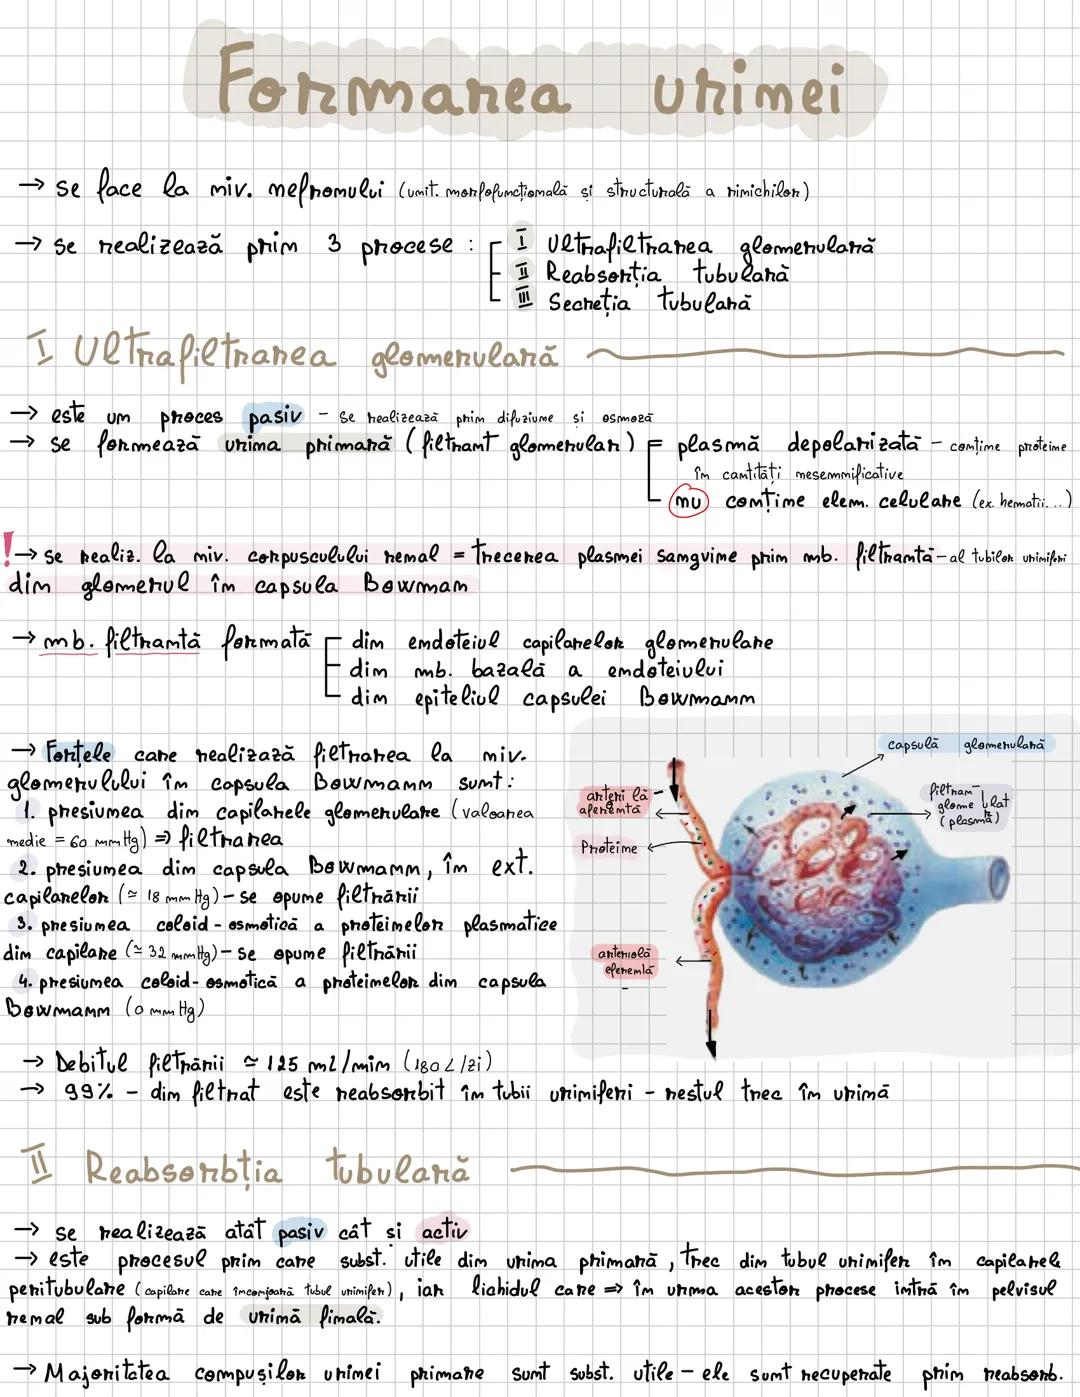 Formarea urinei
→ se face la niv. nefronului (unit. morfofuncțională și structurală a rinichilor)
→ se realizează prin 3 procese : I Ultrafiltrarea glomerulară
II Reabsorția tubulară
III Secreția tubulară
I Ultrafiltrarea glomerulară
→ este un proces pasiv - se realizează prin difuziune și osmoză
→ se formează urina primară (filtrant glomerular) = plasmă depolarizată - conține proteine
în cantități nesemnificative
nu conține elem. celulare (ex. hematii...)
! → se realiz. la niv. corpusculului renal = trecerea plasmei sangvine prin mb. filtrantă - al tubilor uriniferi
din glomerul în capsula Bowman
→ mb. filtrantă formată din endoteiul capilarelor glomerulare
din mb. bazală a endoteiului
din epiteliul capsulei Bowmann
→ Forțele care realizază filtrarea la niv.
glomerulului în capsula Bowmann sunt:
1. presiunea din capilarele glomerulare (valoarea
medie = 60 mmHg) ⇒ filtrarea
2. presiunea din capsula Bowmann, în ext.
capilarelor (≃ 18 mmHg) - se opune filtrării
3. presiunea coloid-osmotică a proteinelor plasmatice
din capilare (≃ 32 mmHg) - se opune filtrării
4. presiunea coloid-osmotică a proteinelor din capsula
Bowmann (0 mmHg)
capsulă glomerulară
arteri la
aferentă
Proteine
filtran
glome lat
(plasmă)
arteriolă
eferentă
→ Debitul filtrării ≃ 125 ml/min (180 L/zi)
→ 99% - din filtrat este reabsorbit în tubii uriniferi - restul trec în urină
II Reabsorbția tubulară
→ se realizează atât pasiv cât și activ
→ este procesul prin care subst. utile din urina primară, trec din tubul urinifer în capilarele
peritubulare (capilare care înconjoară tubul urinifer), iar lichidul care ⇒ în urma acestor procese intră în pelvisul
renal sub formă de urină finală.
→ Majoritatea compușilor urinei primare sunt subst. utile - ele sunt recuperate prin reabsorb.